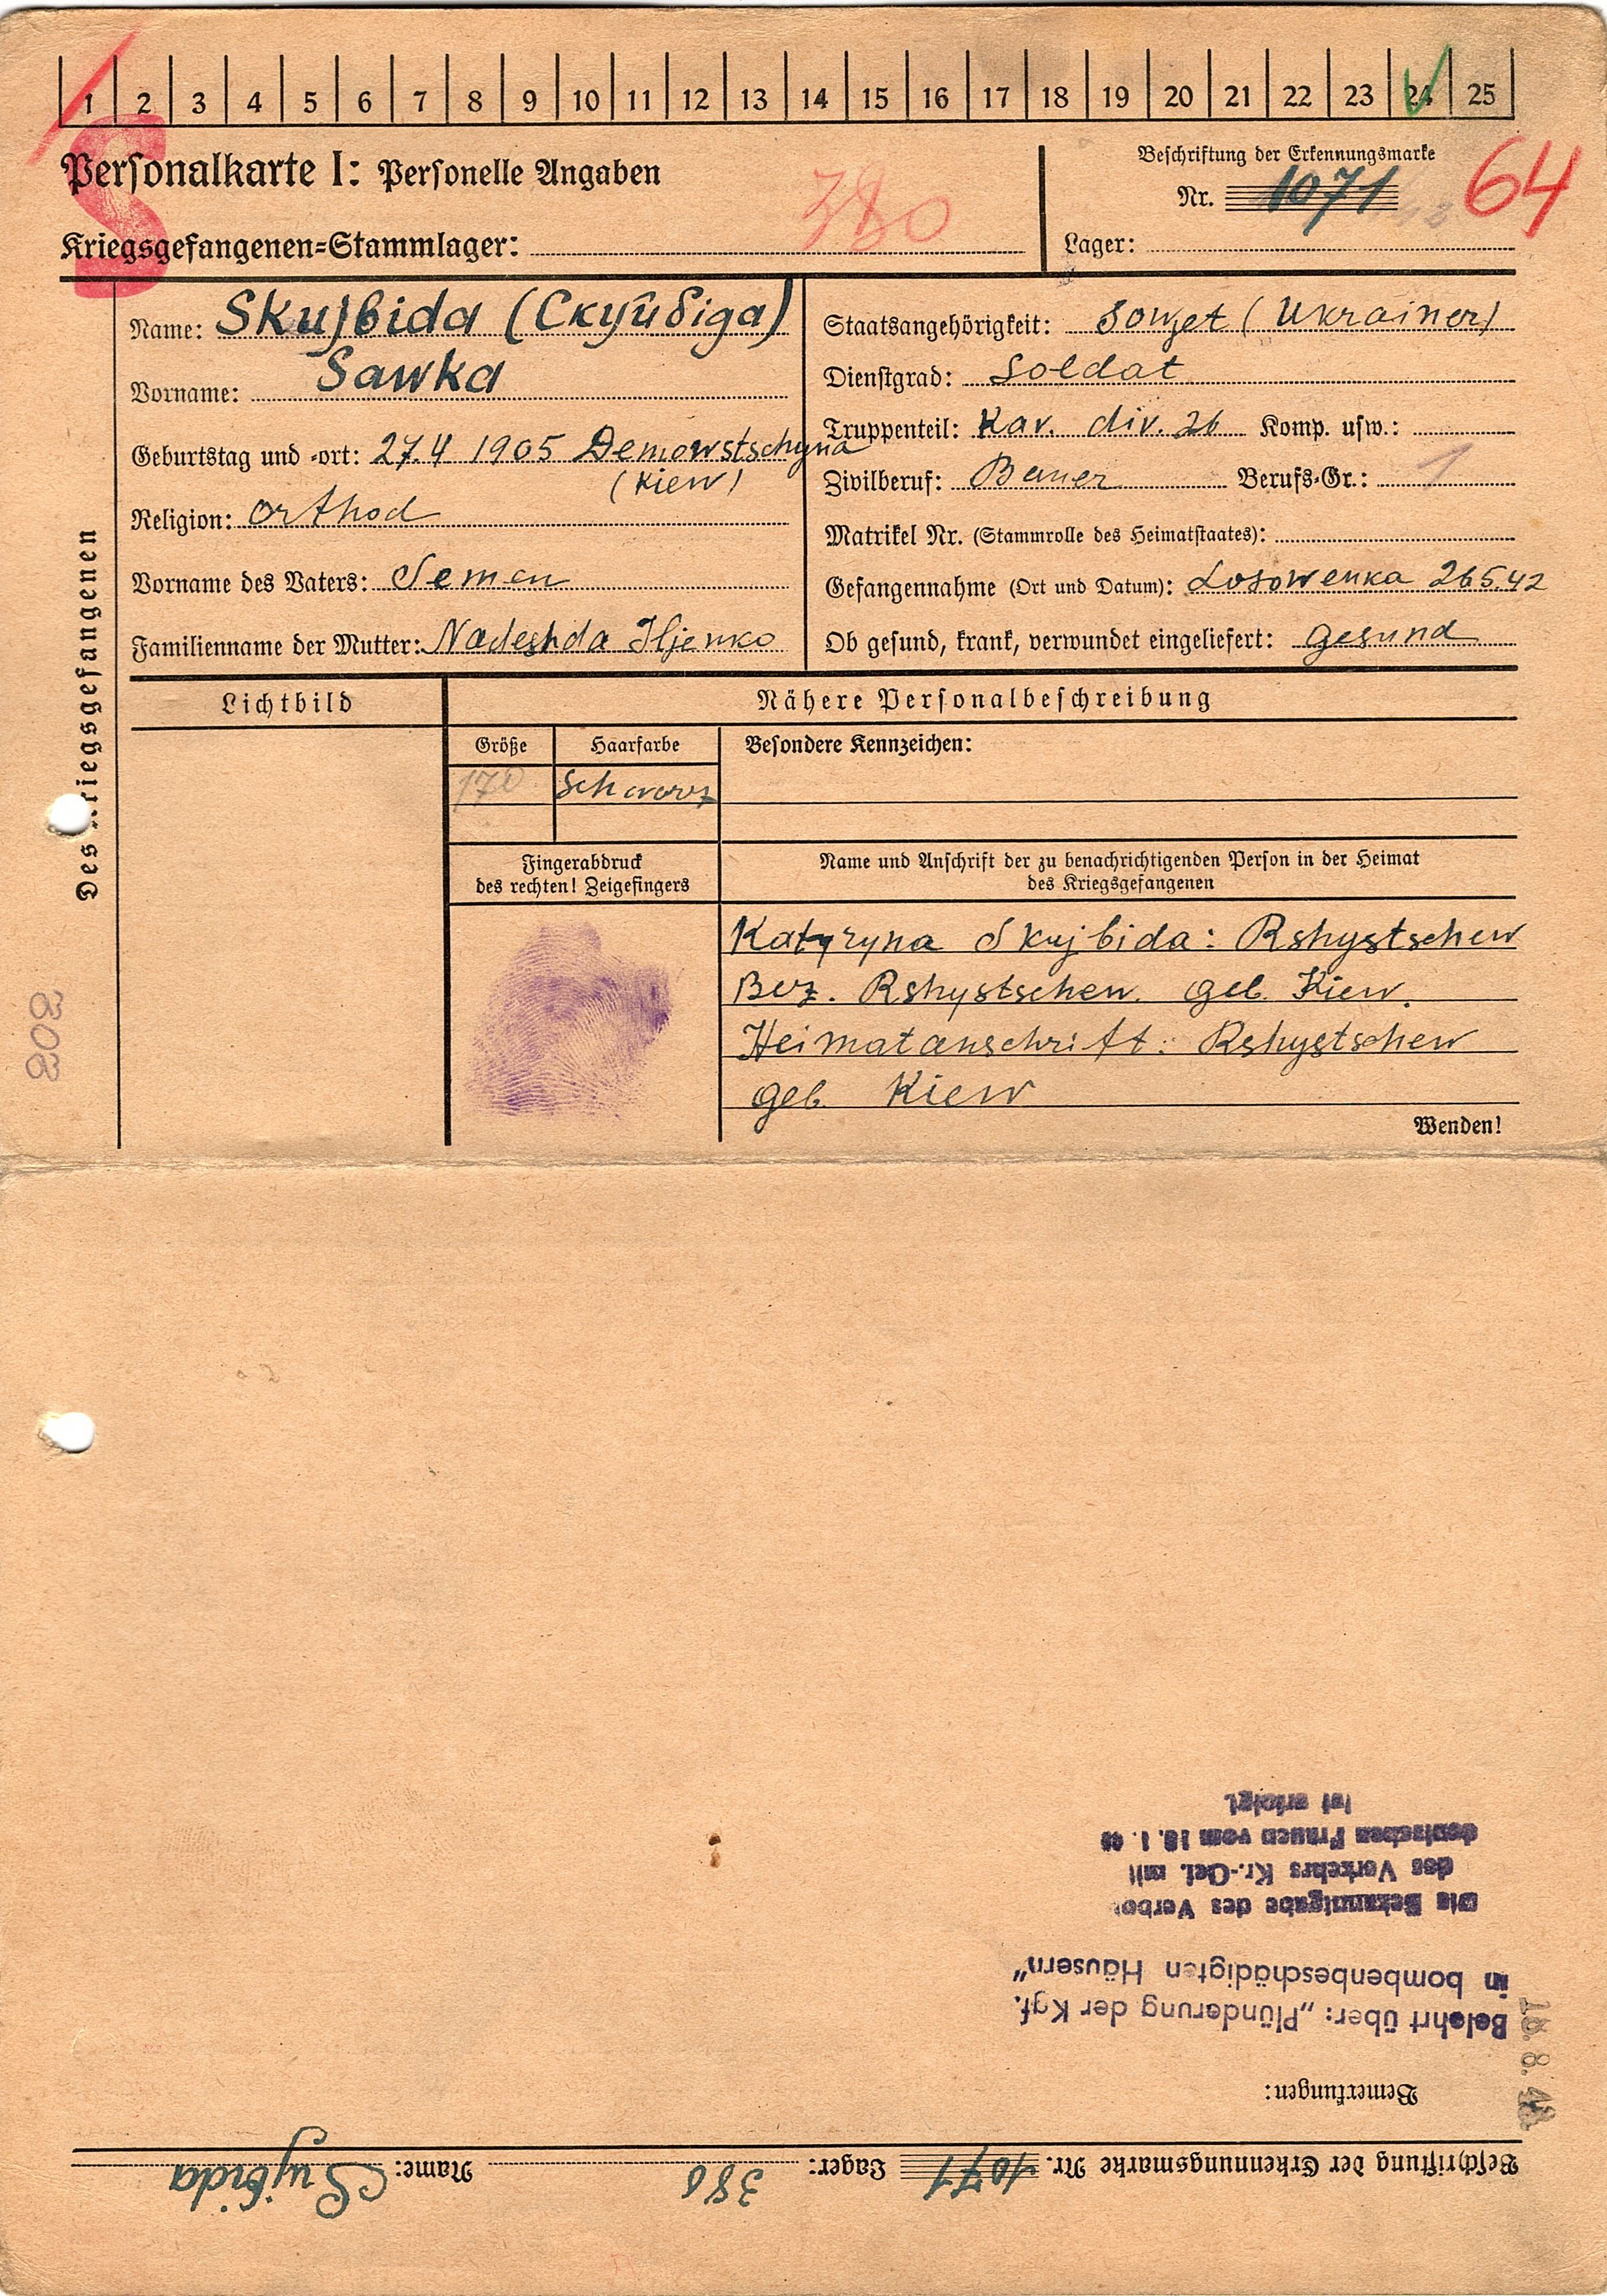 1 2 3 4 5 6 7 8 9 10 11 12 13 14 15 16 17 18 19 20 21 22 23 24 25
S
Personalkarte I: Personelle Angaben
380
Kriegsgefangenen-Stammlager:
Beschriftung der Erkennungsmarke
Nr. 1071
64
Lager:
Des Kriegsgefangenen
308
Name: Skujbida (Скуйбіда)
Vorname: Sawka
Geburtstag und -ort: 27.4 1905 Demowstschyna
(Kiew)
Religion: Orthod
Vorname des Vaters: Semen
Familienname der Mutter: Nadeshda Iljenko
Staatsangehörigkeit: Sowjet (Ukrainer)
Dienstgrad: Soldat
Truppenteil: Kav. div. 26 Komp. usw.:
Zivilberuf: Bauer Berufs-Gr.: 1
Matrikel Nr. (Stammrolle des Heimatstaates):
Gefangennahme (Ort und Datum): Losowenka 26.5.42
Ob gesund, krank, verwundet eingeliefert: gesund
Lichtbild
Nähere Personalbeschreibung
Größe Haarfarbe Besondere Kennzeichen:
170 schwarz
Fingerabdruck
des rechten! Zeigefingers
Name und Anschrift der zu benachrichtigenden Person in der Heimat
des Kriegsgefangenen
Kateryna Skujbida: Rshystschew
Bez. Rshystschew. Geb. Kiew.
Heimatanschrift: Rshystschew
Geb. Kiew
Wenden!
Beschriftung der Erkennungsmarke Nr. 1071 Lager: 380 Name: Sujbida
Bemerkungen:
18. 8. 43
Belehrt über: „Plünderung der Kgf.
in bombenbeschädigten Häusern"
Die Bekanntgabe des Verbo
des Verkehrs Kr.-Gef. mit
deutschen Frauen vom 18. 1. 43
ist erfolgt.